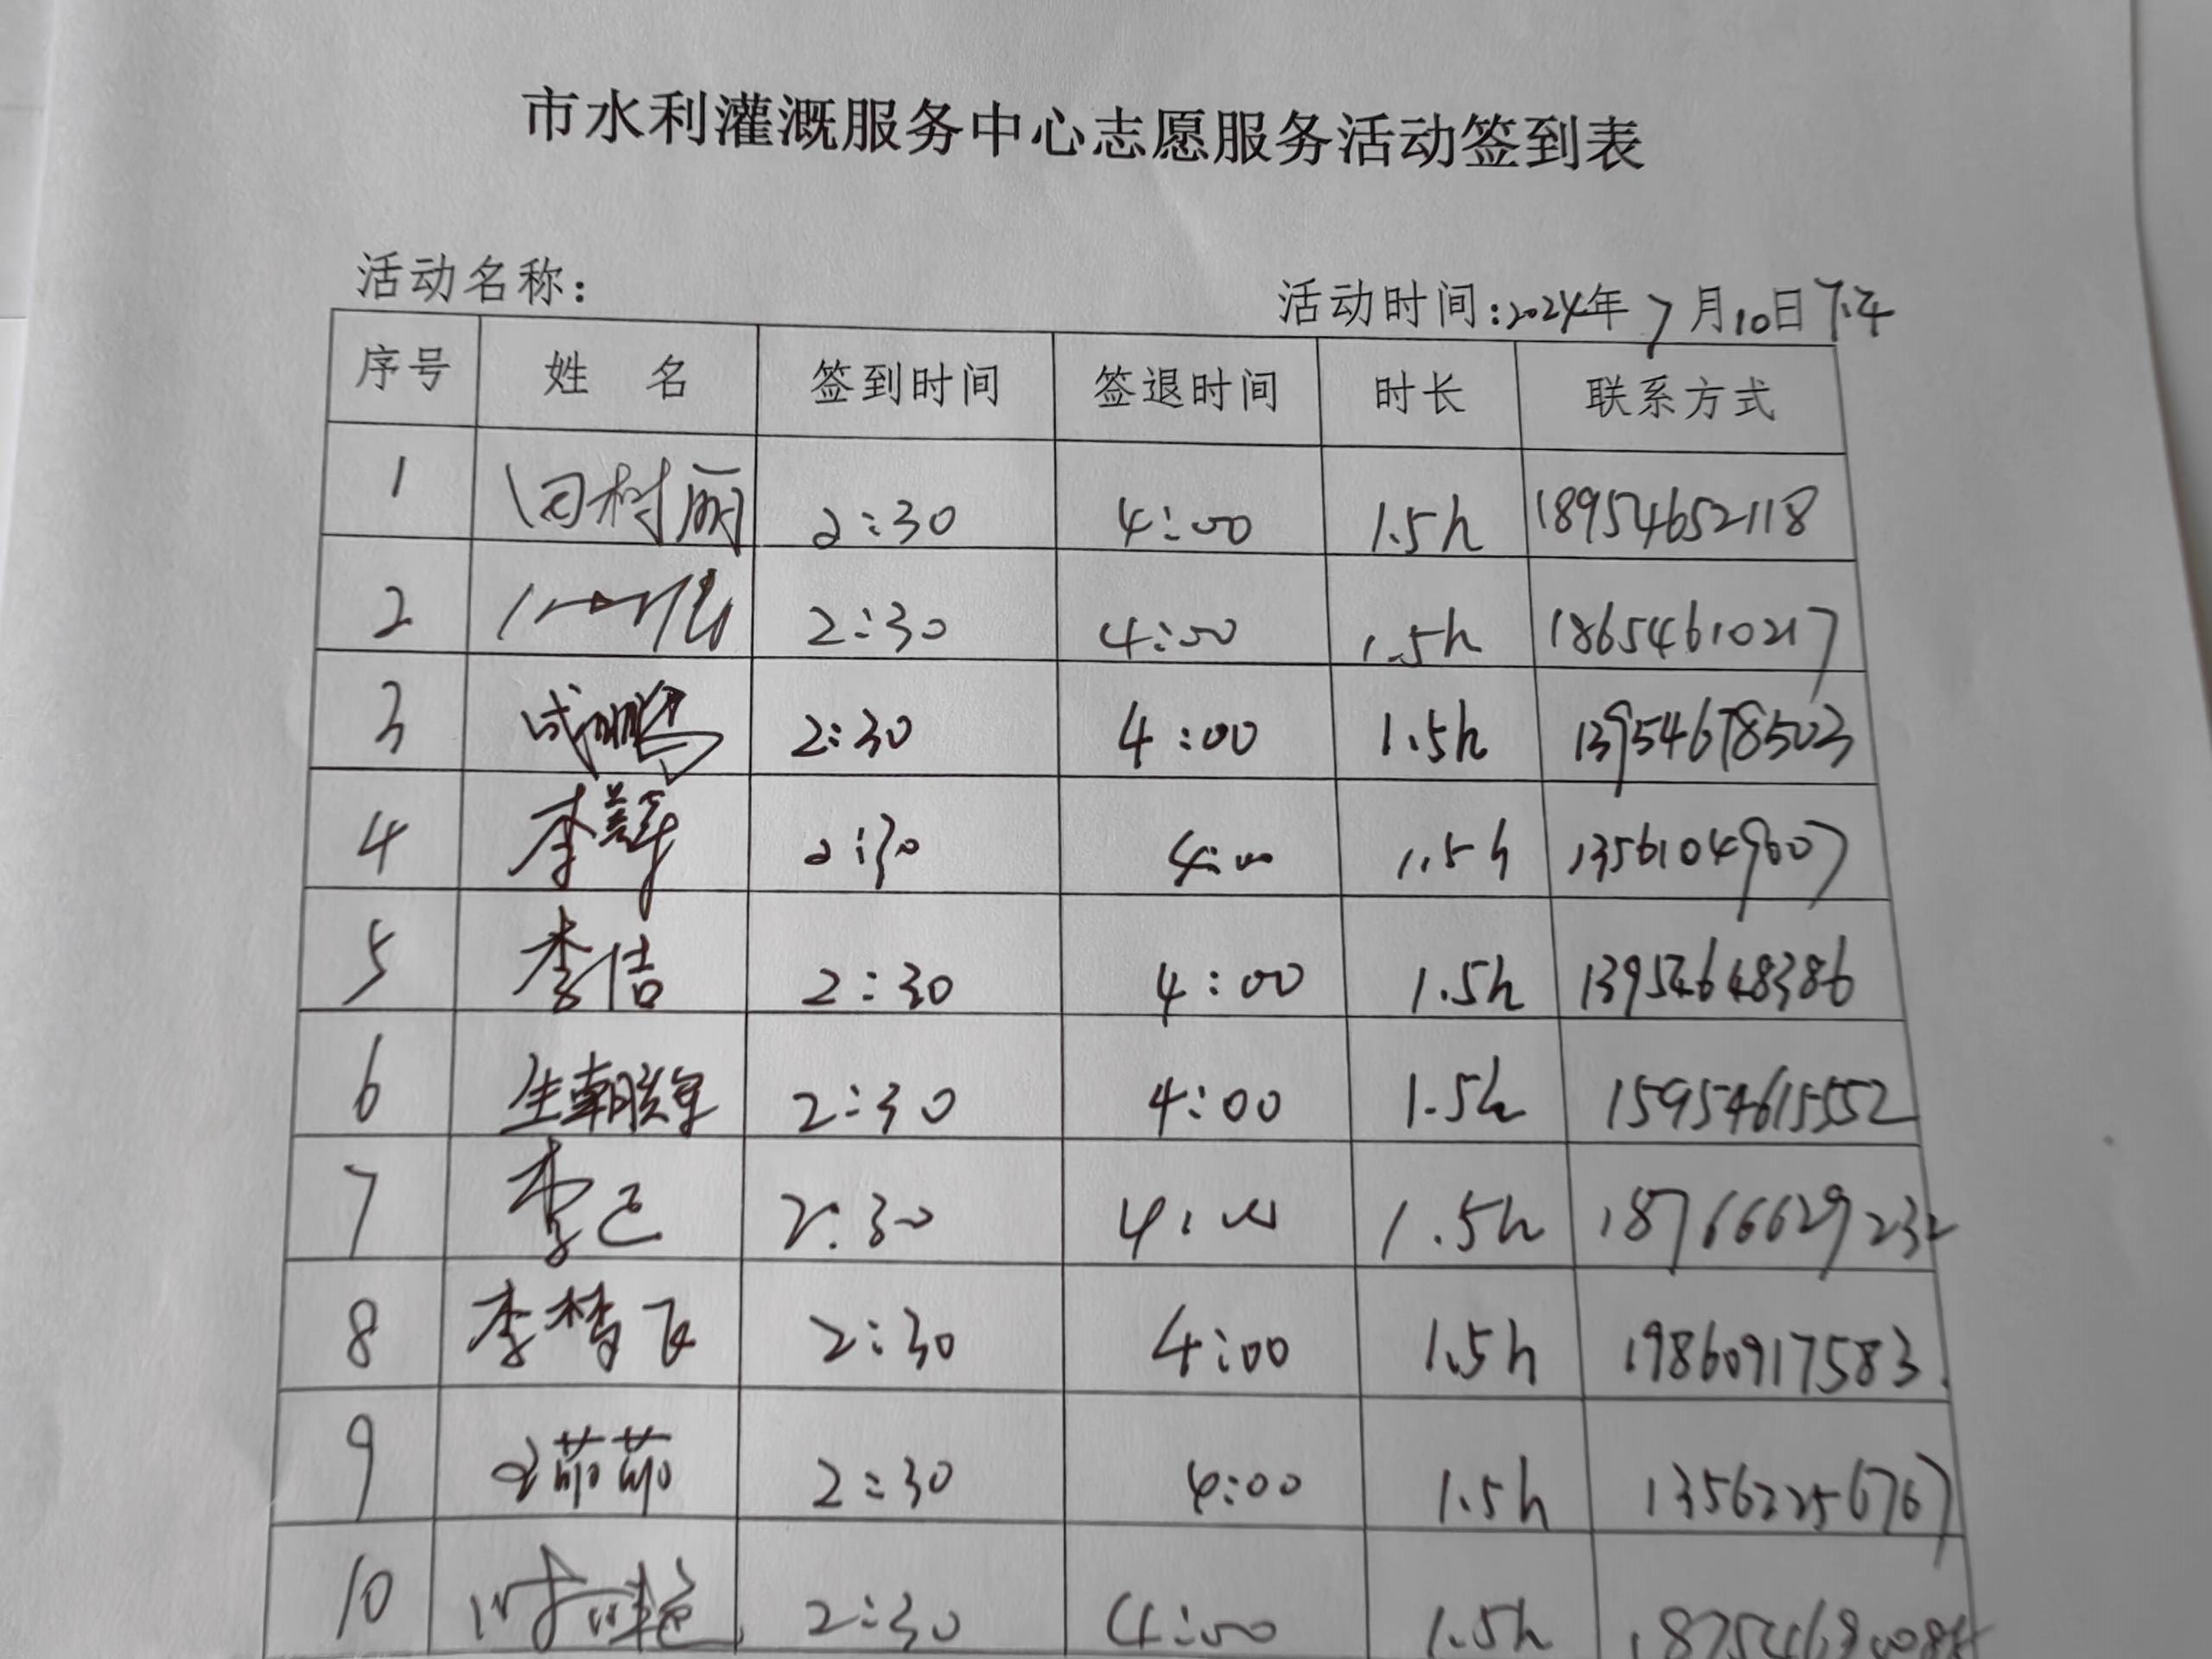 市水利灌溉服务中心志愿服务活动签到表
活动名称： 活动时间:2024年7月10日下午
序号 姓 名 签到时间 签退时间 时长 联系方式
1 田树丽 2:30 4:00 1.5h 18954652118
2 2:30 4:00 1.5h 18654610217
3 成鹏 2:30 4:00 1.5h 13954678503
4 李 2:30 4:00 1.5h 13561049607
5 李洁 2:30 4:00 1.5h 13954648386
6 生朝 2:30 4:00 1.5h 15954615552
7 李 2:30 4:00 1.5h 18766629232
8 李梦飞 2:30 4:00 1.5h 19860917583
9 2:30 4:00 1.5h 13562256767
10 2:30 4:00 1.5h